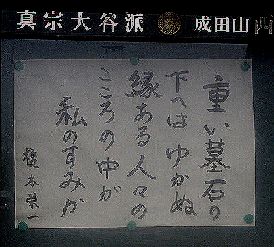 真宗大谷派 成田山西
重い墓石の
下へは ゆかぬ
縁ある人々の
こころの中が
私のすみか